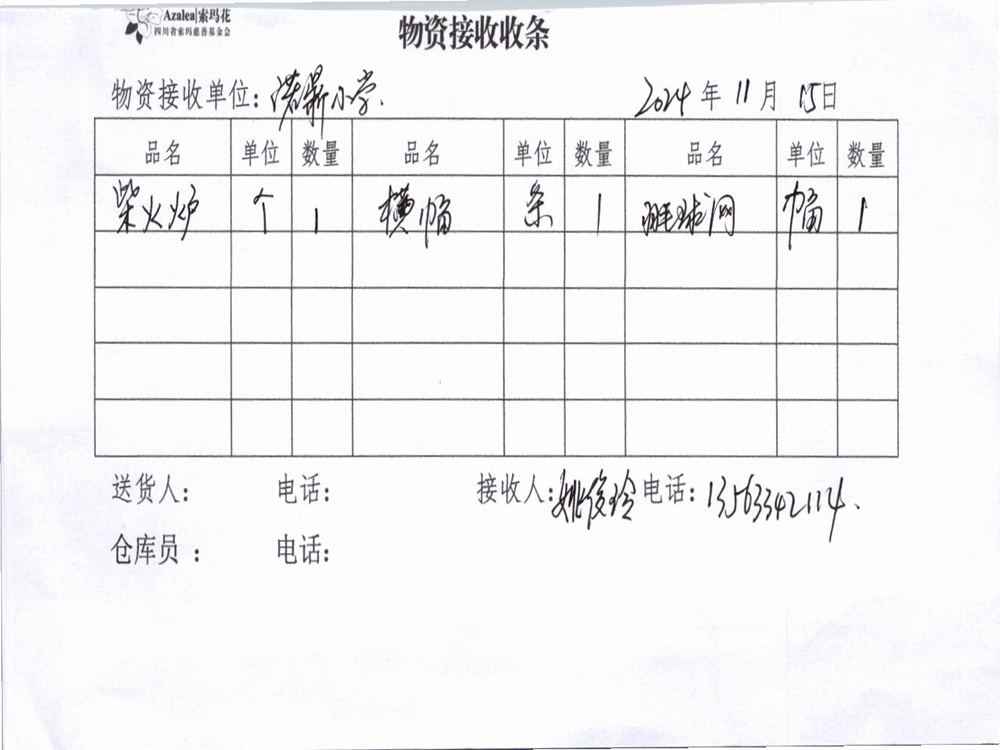 Azalea|索玛花
四川省索玛慈善基金会
物资接收收条
物资接收单位：诺鼎小学. 2024年11月15日
品名 单位 数量 品名 单位 数量 品名 单位 数量
柴火炉 个 1 横幅 条 1 羽毛球网 幅 1
送货人： 电话： 接收人：姚俊玲 电话：13563342114、
仓库员 ： 电话：